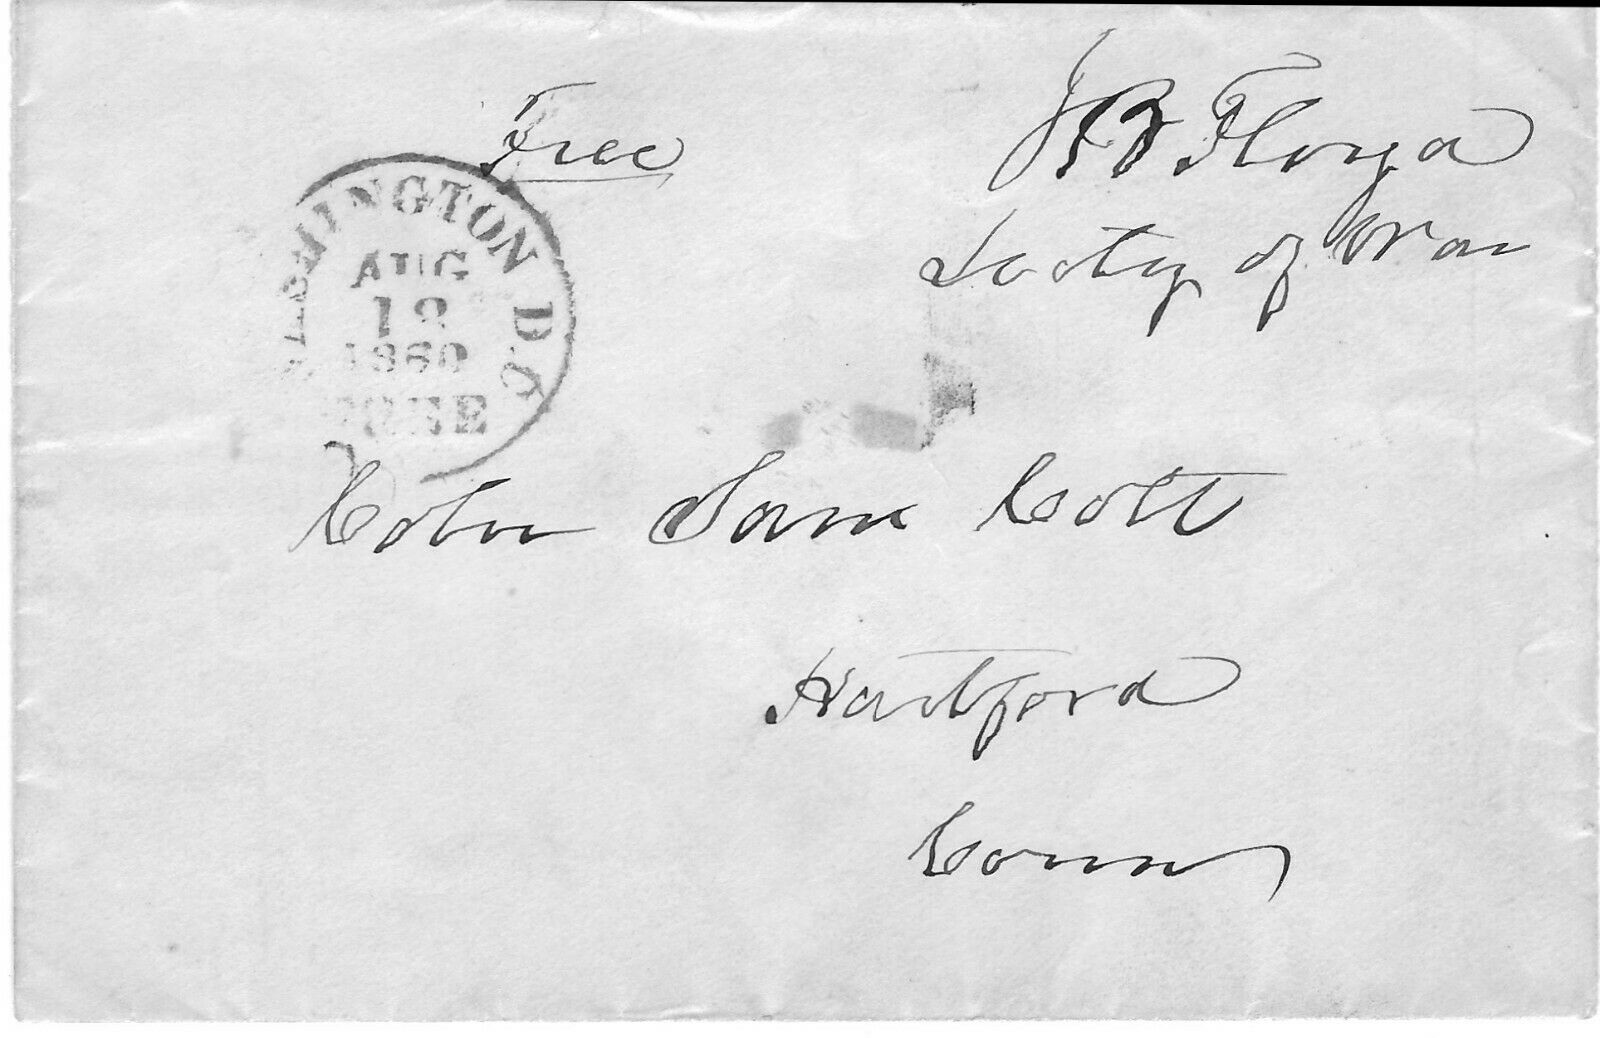 Free
J B Floyd
Secty of War
WASHINGTON D.C.
AUG
12
1860
FREE
Coln Sam Colt
Hartford
Conn